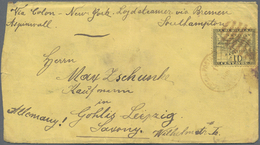 Via Colon - New York. Loydsteamer via Bremen
Aspinwall Southampton
Herrn
Max Zschunke
Kaufmann
in Gohlis Leipzig
Allemany! Saxony.
10